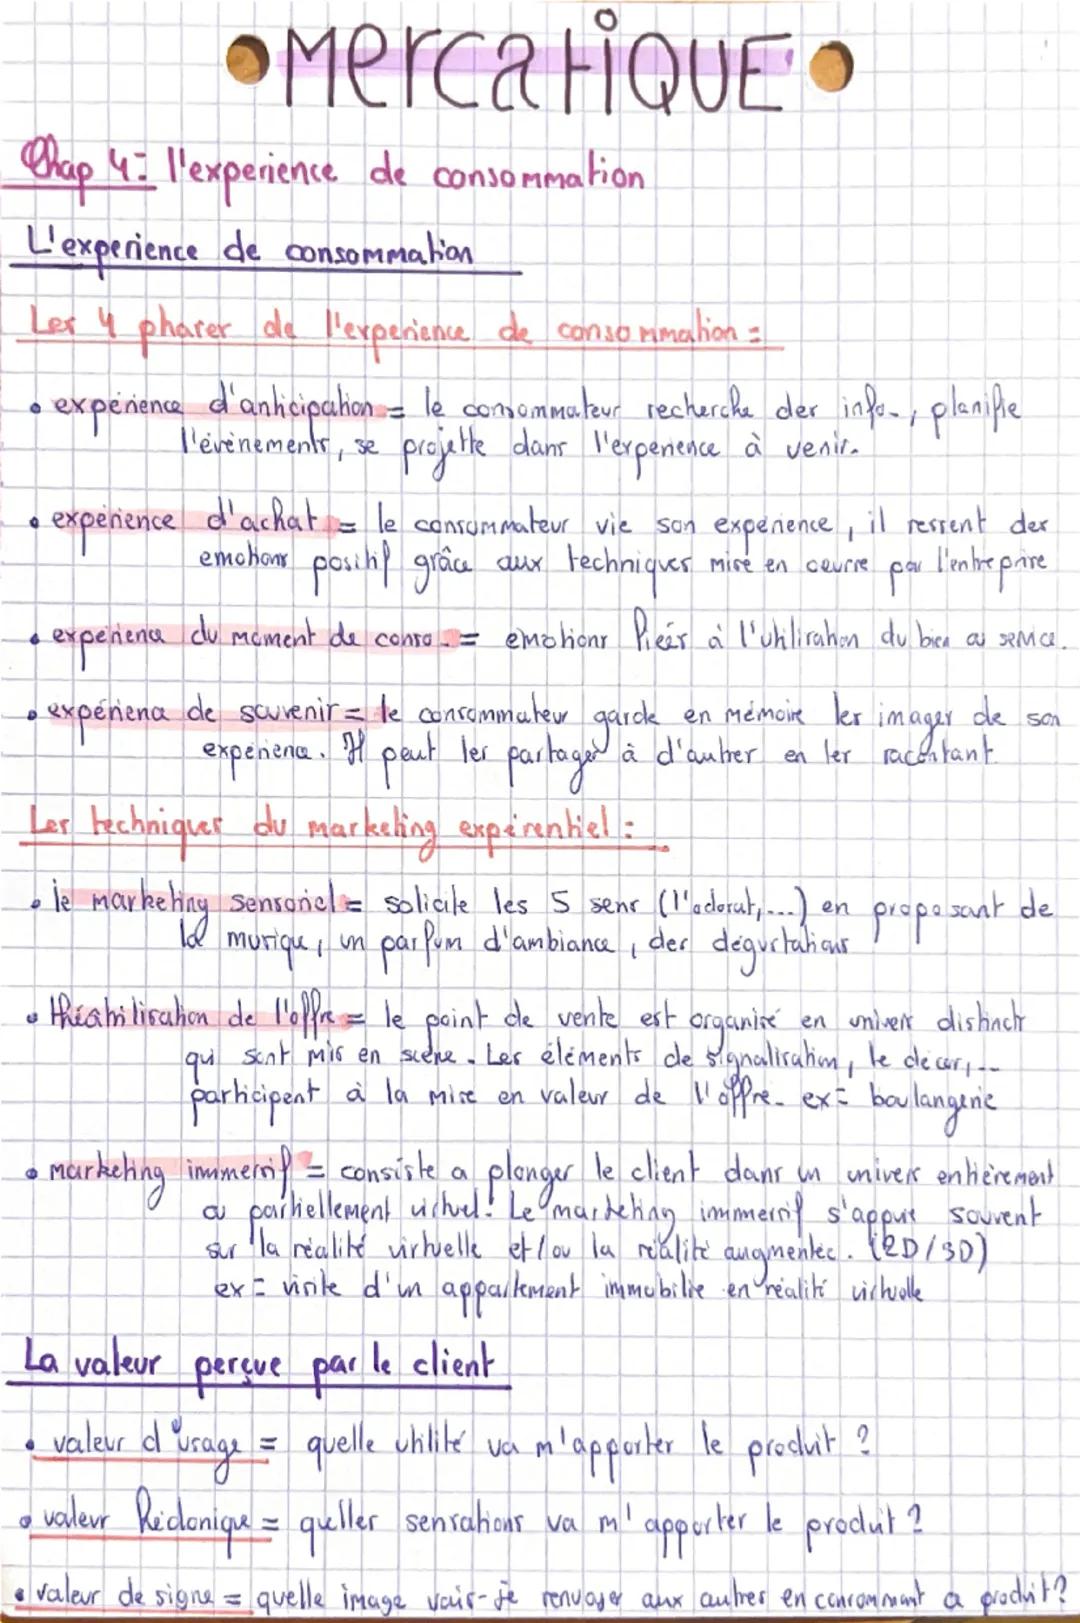 MercatiQUE
Chap 4: l'experience de consommation
L'experience de consommation
Les 4 phases de l'experience de consommation =
• expérience d'anticipation = le consommateur recherche des info., planifie
l'évènements, se projette dans l'experience à venir.
• expérience d'achat = le consommateur vie son expérience, il ressent des
emotions positif grâce aux techniques mise en oeuvre par l'entreprise
• expérience du moment de conso. = emotions liées à l'utilisation du bien ou service.
• expérience de souvenir = le consommateur garde en mémoire les images de son
expérience. Il peut les partager à d'autres en les racontant
Les techniques du marketing expérentiel :
• le marketing sensoriel = solicite les 5 sens (l'odorat,...) en proposant de
la musique, un parfum d'ambiance, des dégustations
• théatrilisation de l'offre = le point de vente est organisé en univers distincts
qui sont mis en scène. Les éléments de signalisation, le décor,...
participent à la mise en valeur de l'offre. ex = boulangerie
• marketing immersif = consiste a plonger le client dans un univers entièrement
ou partiellement virtuel. Le marketing immersif s'appuie souvent
sur la réalité virtuelle et/ou la réalité augmentée. (2D/3D)
ex = visite d'un appartement immobilie en réalité virtuelle
La valeur perçue par le client
• valeur d'usage = quelle utilité va m'apporter le produit ?
• valeur hédonique = quelles sensations va m'apporter le produit ?
• valeur de signe = quelle image vais-je renvoyer aux autres en consommant ce produit ?